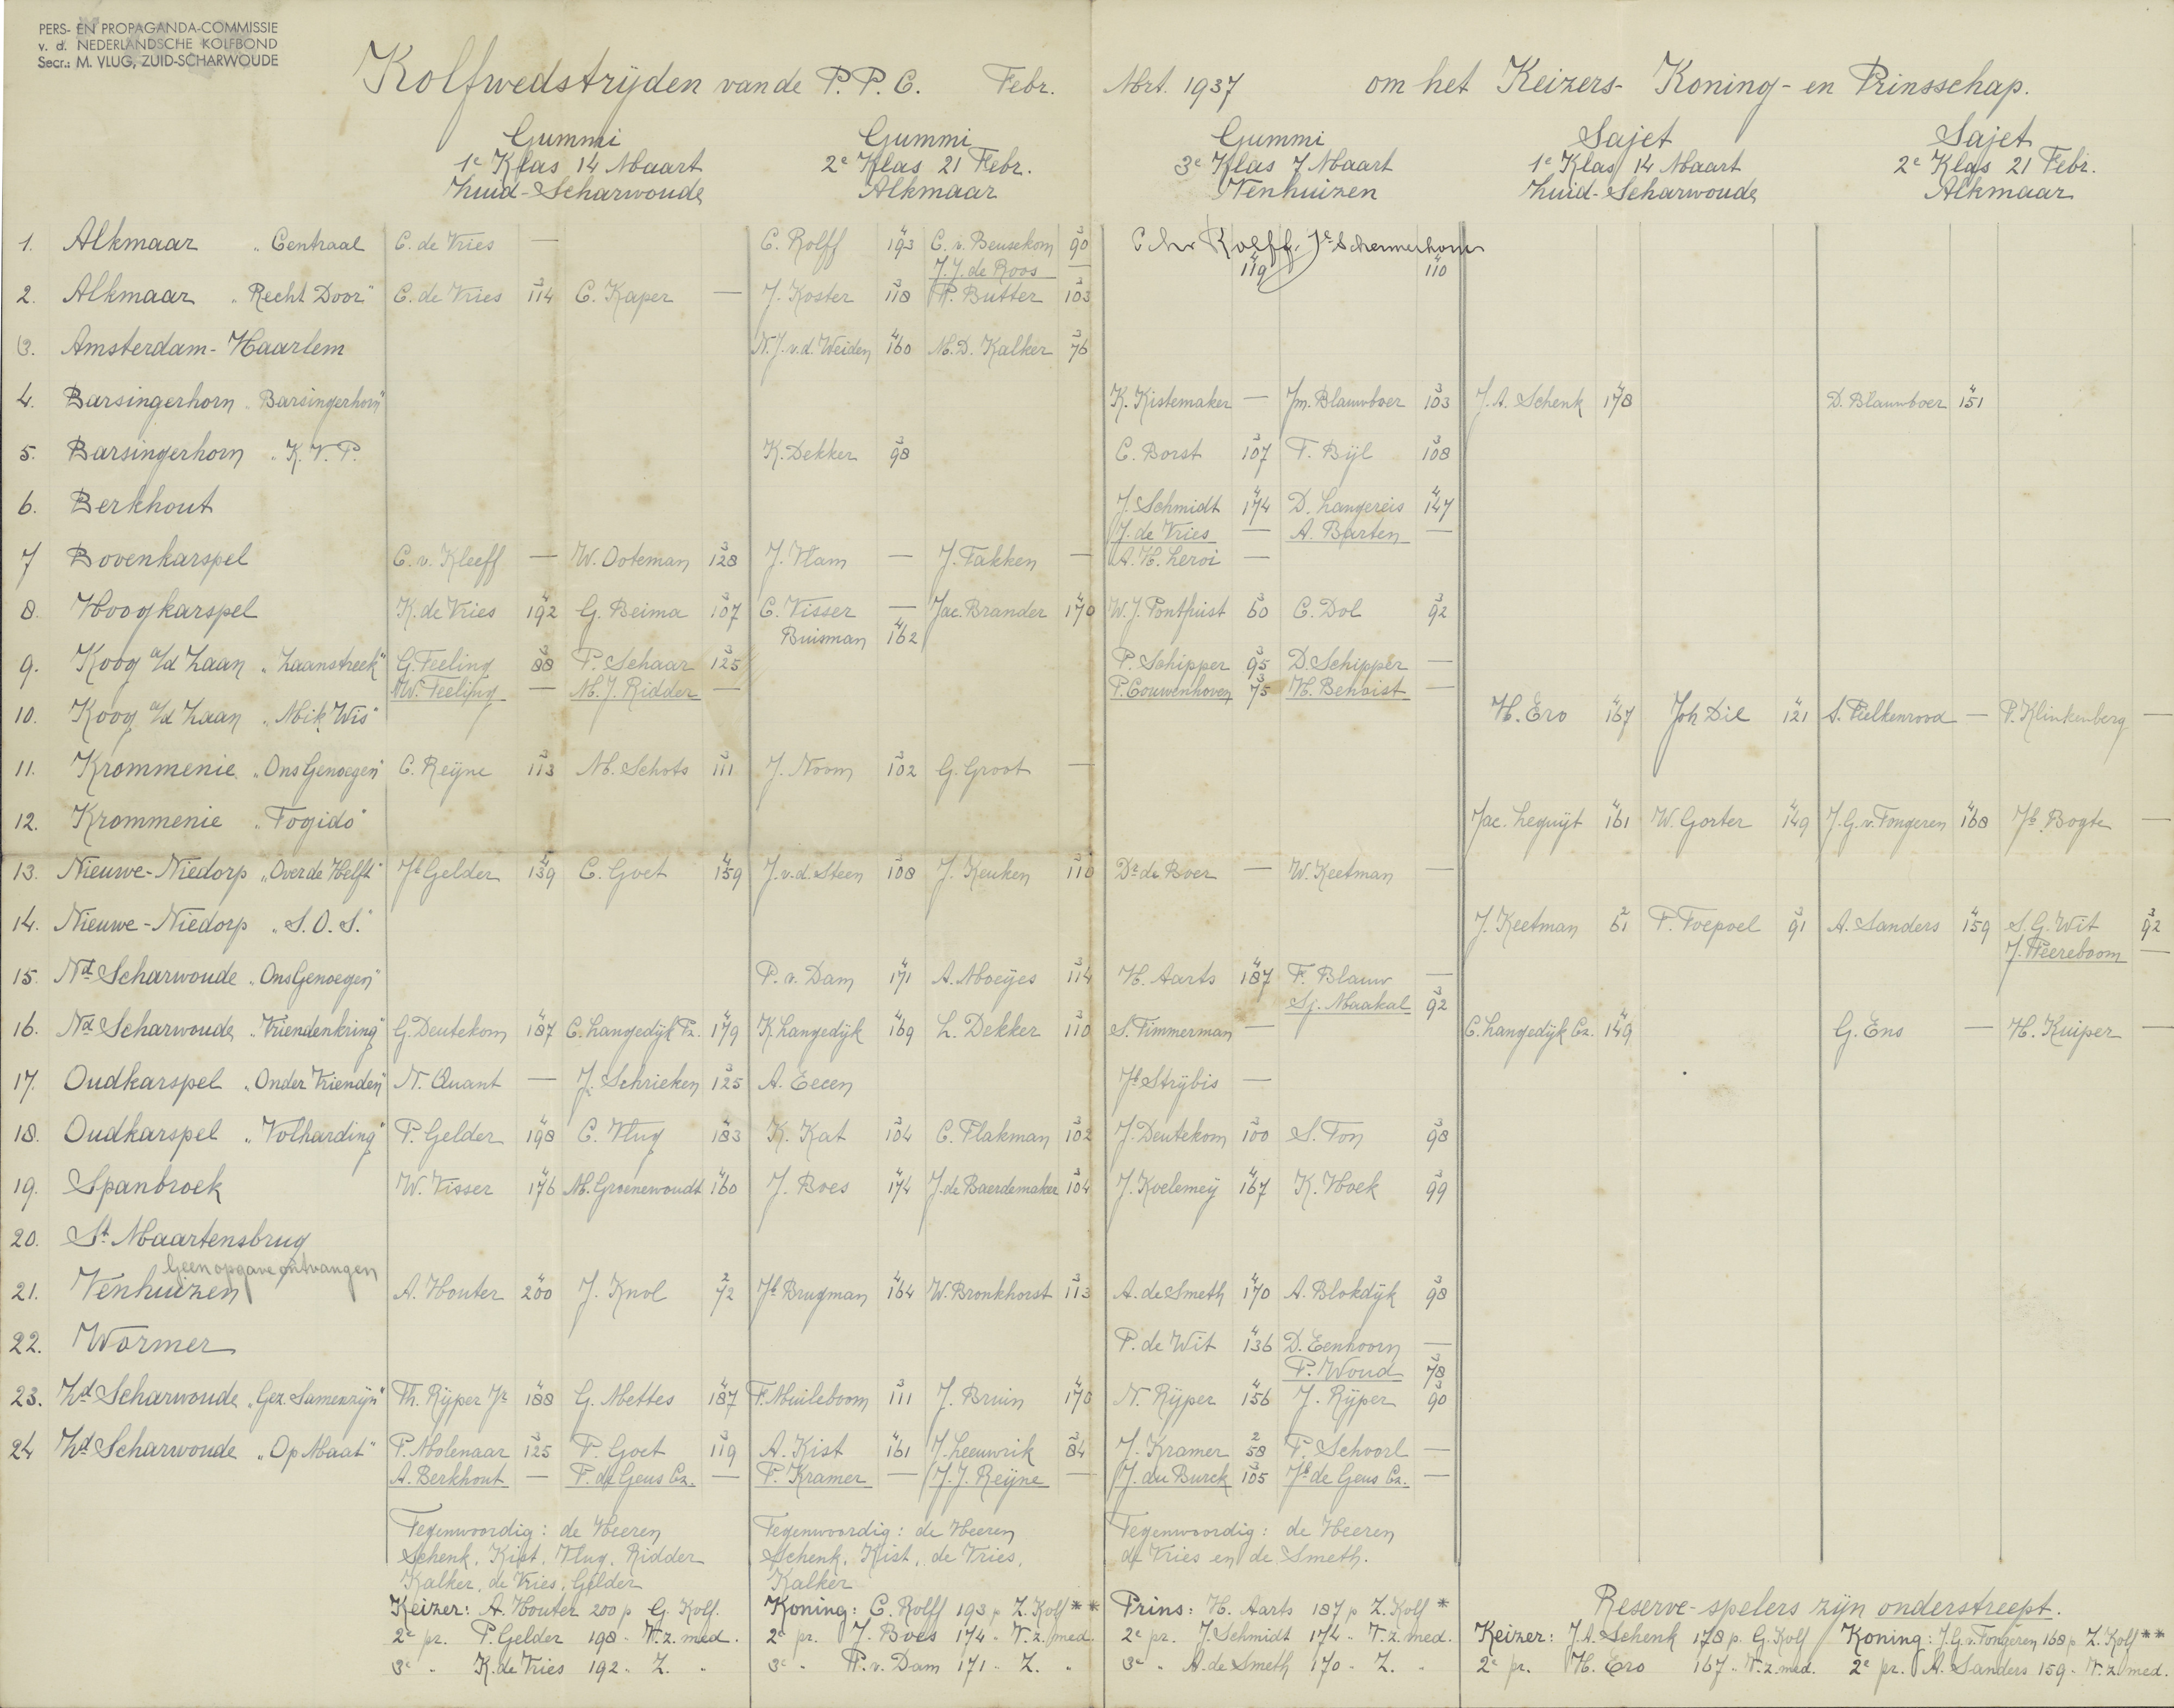 PERS- EN PROPAGANDA-COMMISSIE
v. d. NEDERLANDSCHE KOLFBOND
Secr.: M. VLUG, ZUID-SCHARWOUDE
Kolfwedstrijden van de P.P.C. Febr. Mrt. 1937 om het Keizers- Koning- en Prinsschap.
Gummi Gummi Gummi Sajet Sajet
1e Klas 14 Maart 2e Klas 21 Febr. 3e Klas 7 Maart 1e Klas 14 Maart 2e Klas 21 Febr.
Zuid-Scharwoude Alkmaar Venhuizen Zuid-Scharwoude Alkmaar
1. Alkmaar „Centraal C. de Vries — C. Rolff 4 193 C. v. Beusekom 3 90 Chr Kolff 4 119 Js Schermerhorn 4 110
J. J. de Roos —
2. Alkmaar „Recht Door" C. de Vries 3 114 C. Kaper — J. Koster 3 118 P. Butter 3 103
3. Amsterdam-Haarlem N. J. v.d. Weiden 4 160 M. D. Kalker 3 76
4. Barsingerhorn „Barsingerhorn" K. Kistemaker — Jm. Blauwboer 3 103 J. A. Schenk 4 178 D. Blauwboer 4 151
5. Barsingerhorn „K.V.P. K. Dekker 3 98 C. Borst 3 107 T. Bijl 3 108
6. Berkhout J. Schmidt 4 174 D. Langereis 4 147
J. de Vries — A. Barten —
7 Bovenkarspel C. v. Kleeff — W. Ooteman 3 128 J. Vlam — J. Takken — A. H. Leroi —
8. Hoogkarspel K. de Vries 4 192 G. Beima 3 107 C. Visser — Jac. Brander 4 170 W. J. Pontfuist 3 60 C. Dol 3 92
Buisman 4 162
9. Koog a/d Zaan „Zaanstreek" G. Teeling 3 88 P. Schaar 3 125 P. Schipper 3 95 D. Schipper —
W. Teeling — M. J. Ridder — P. Couwenhoven 3 75 H. Benoist —
10. Koog a/d Zaan „Mik Wis" H. Ero 4 167 Joh Dil 4 121 S. Tielkenrood — P. Klinkenberg —
11. Krommenie „Ons Genoegen" C. Reijne 3 113 M. Schots 3 111 J. Noom 3 102 G. Groot —
12. Krommenie „Togido" Jac. Leguijt 4 161 W. Gorter 4 149 J. G. v. Tongeren 4 168 Jb. Bogte —
13. Nieuwe-Niedorp „Over de Helft" Jb Gelder 4 139 C. Goet 4 159 J. v. d. Steen 3 108 J. Keuken 3 110 Dr de Boer — W. Keetman —
14. Nieuwe-Niedorp „S.O.S." J. Keetman 2 61 T. Toepoel 3 91 A. Sanders 4 159 S. G. Wit 3 92
J. Peereboom —
15. Nd Scharwoude „Ons Genoegen" P. v. Dam 4 171 A. Moeijes 3 114 H. Aarts 4 187 F. Blauw —
Sj. Maakal 3 92
16. Nd Scharwoude „Vriendenkring" G. Deutekom 4 187 C. Langedijk Pz. 4 179 K. Langedijk 4 169 L. Dekker 3 110 S. Timmerman — C. Langedijk Cz. 4 149 G. Ens — H. Kuiper —
17. Oudkarspel „Onder Vrienden" N. Quant — J. Schrieken 3 125 A. Eecen Jb Strijbis —
18. Oudkarspel „Volharding" P. Gelder 4 198 C. Vlug 4 183 K. Kat 3 104 C. Plakman 3 102 J. Deutekom 3 100 S. Ton 3 98
19. Spanbroek W. Visser 4 176 M. Groenewoudt 4 160 J. Boes 4 174 J. de Baerdemaker 3 104 J. Koelemeij 4 167 K. Hoek 3 99
20. St. Maartensbrug
Geen opgave ontvangen
21. Venhuizen A. Houter 4 200 J. Knol 2 72 Jb Brugman 4 164 W. Bronkhorst 3 113 A. de Smeth 4 170 A. Blokdijk 3 98
22. Wormer P. de Wit 4 136 D. Eenhoorn —
P. Woud 3 78
23. Zd Scharwoude „Gez. Samenzijn" Th. Rijper Jr 4 188 G. Mettes 4 187 F. Muileboom 3 111 J. Bruin 4 170 N. Rijper 4 156 J. Rijper 3 90
24 Zd Scharwoude „Op Maat" P. Molenaar 3 125 P. Goet 3 119 A. Kist 4 161 J. Leeuwrik 3 84 J. Kramer 2 58 P. Schoorl —
A. Berkhout — P. de Geus Cz. — P. Kramer — J. J. Reijne — J. du Burck 3 105 Jb de Geus Cz. —
Tegenwoordig: de Heeren
Schenk, Kist, Vlug, Ridder
Kalker, de Vries, Gelder
Keizer: A. Houter 200 p G. Kolf.
2e pr. P. Gelder 198 „ V.z. med.
3e „ K. de Vries 192 „ Z. „
Tegenwoordig: de Heeren
Schenk, Kist, de Vries,
Kalker
Koning: C. Rolff 193 p Z. Kolf **
2e pr. J. Boes 174 „ V.z. med.
3e „ P. v. Dam 171 „ Z. „
Tegenwoordig: de Heeren
de Vries en de Smeth.
Prins: H. Aarts 187 p Z. Kolf *
2e pr. J. Schmidt 174 „ V.z. med.
3e „ A. de Smeth 170 „ Z. „
Reserve-spelers zijn onderstreept.
Keizer: J. A. Schenk 178 p. G. Kolf
2e pr. H. Ero 167 „ V.z. med.
Koning: J. G. v. Tongeren 168 p Z. Kolf **
2e pr. A. Sanders 159 „ V.z. med.